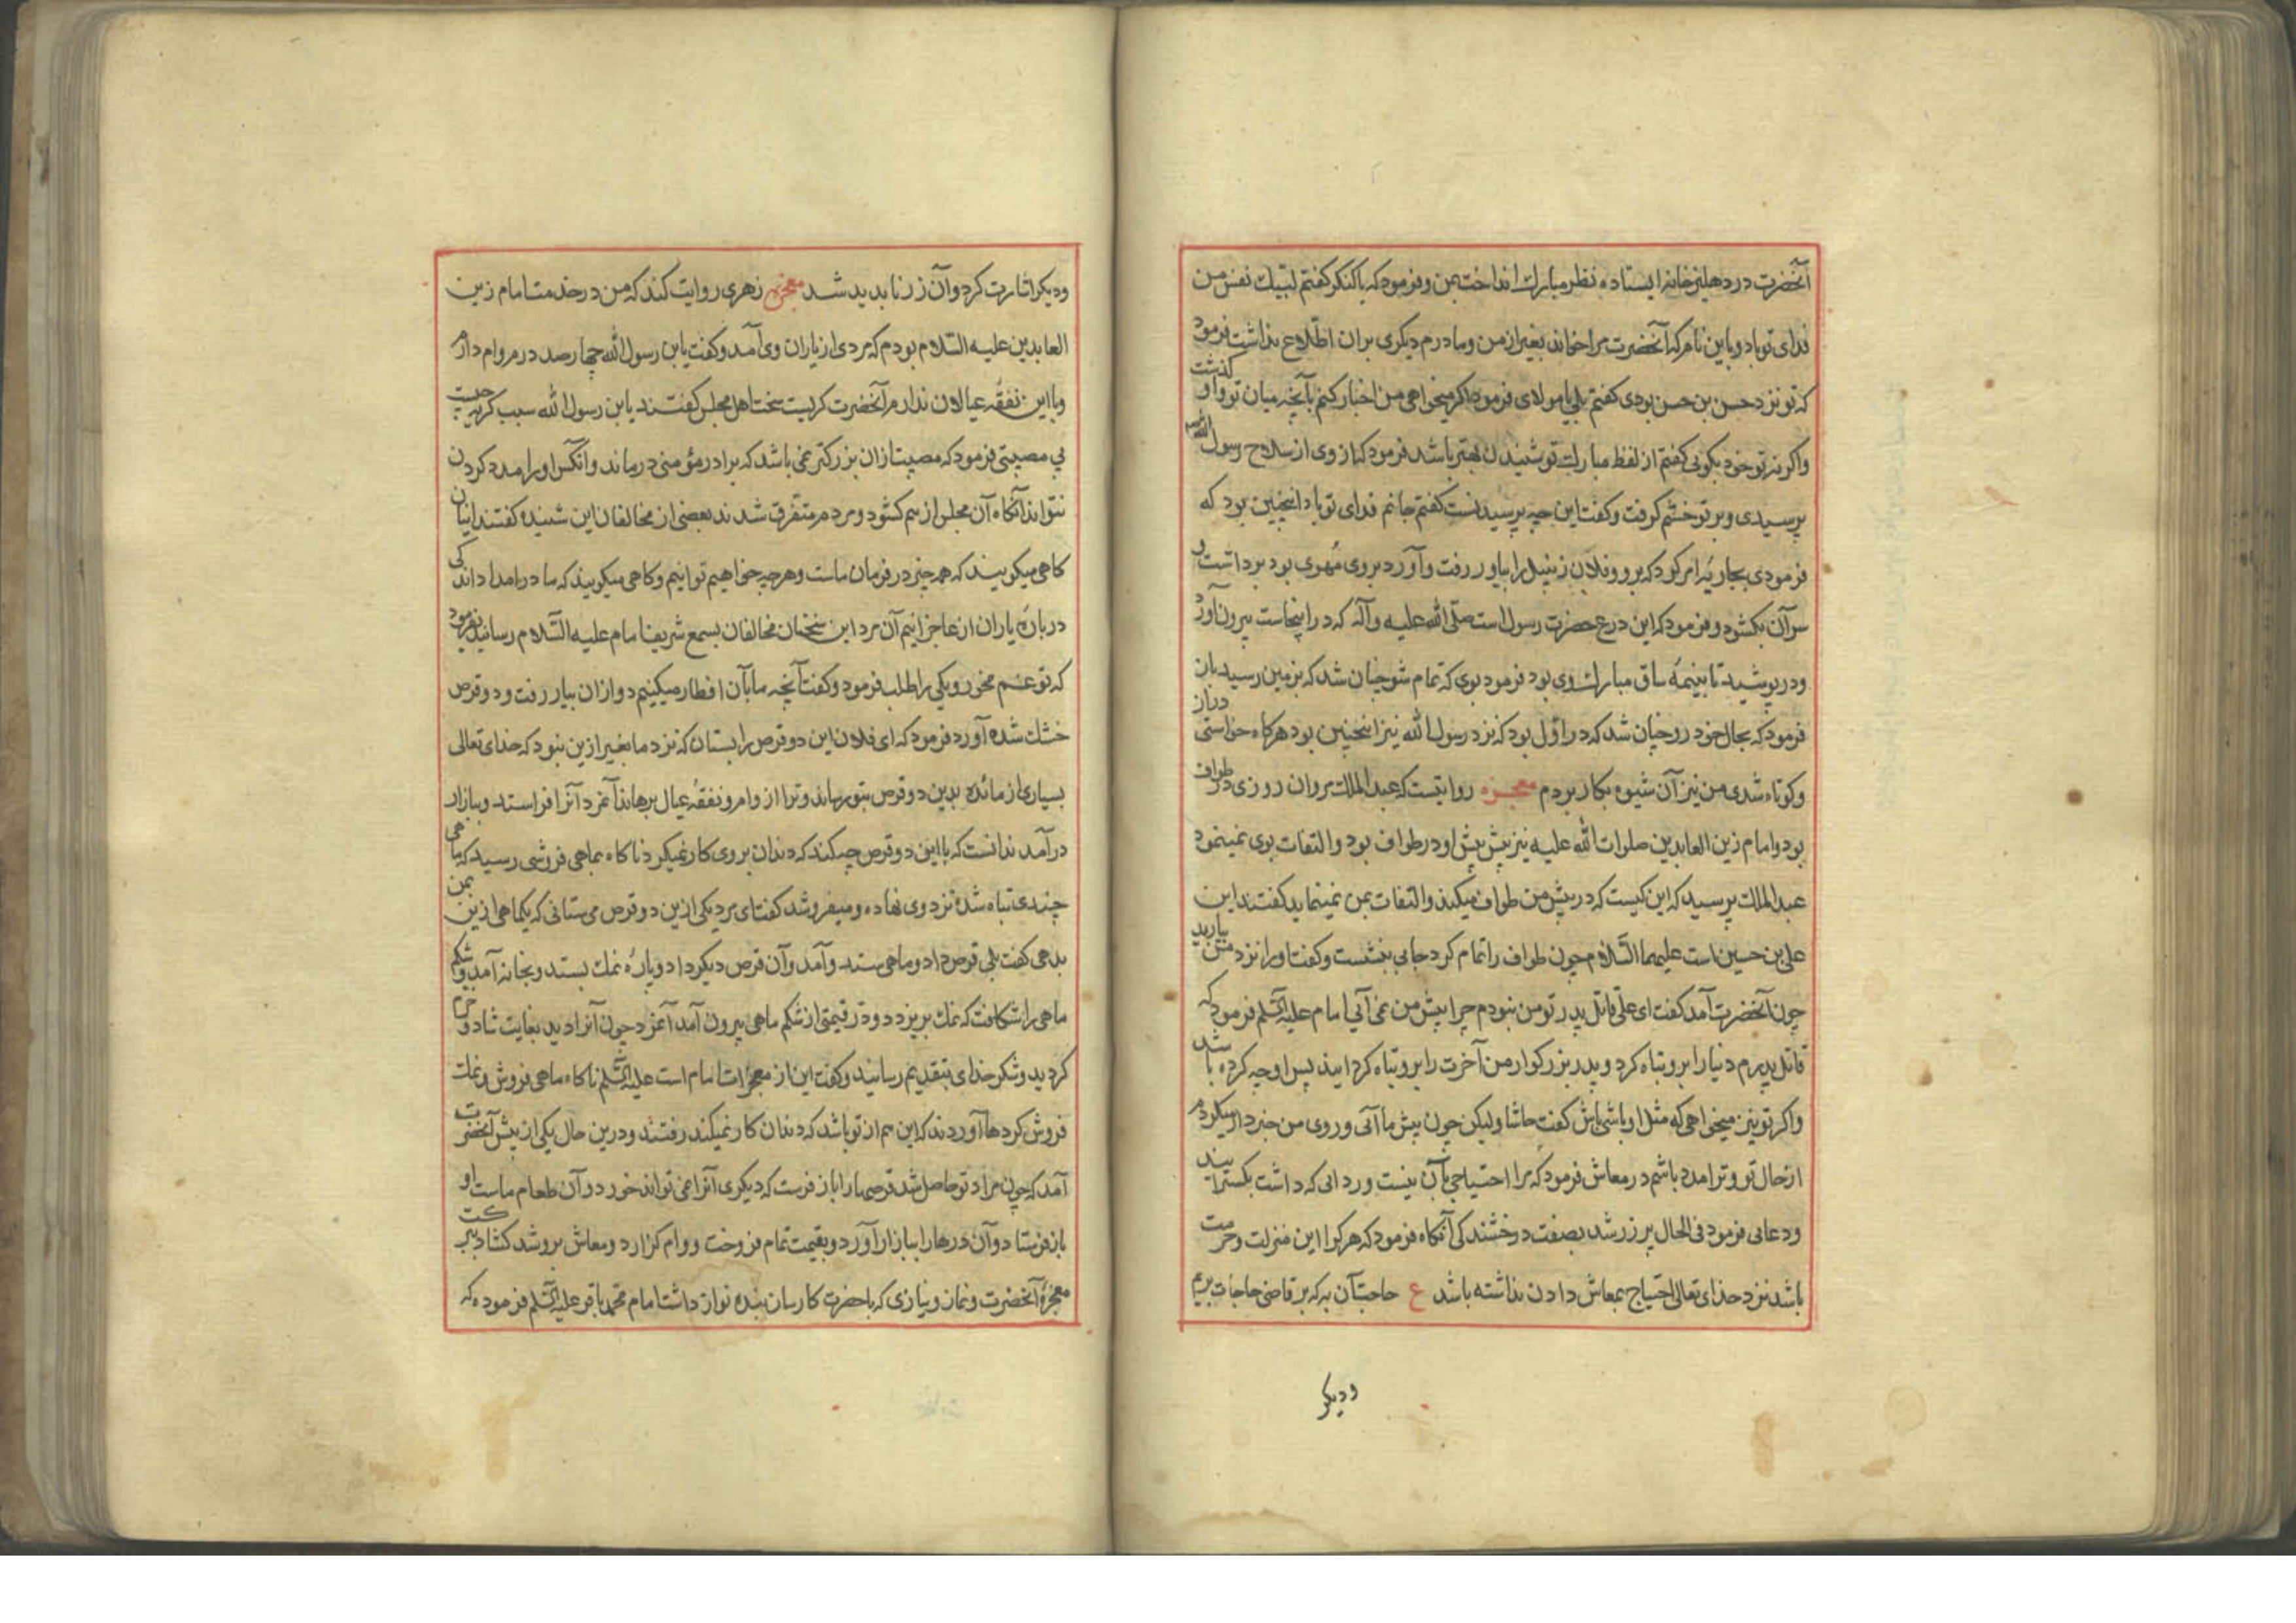 آنحضرت در دهلیز خانه ایستاده نظر مبارک انداخت بمن و فرمود که یا کنکر کفتم لبیک نفس من
فدای تو باد و باین نام که آنحضرت مرا خواند بغیر از من و مادرم دیکری بران اطلاع نداشت فرمود
که تو نزد حسن بن حسن بودی کفتم بلی یا مولای فرمود اکر میخواهی من اخبار کنم بآنچه میان تو و او کذشت
و اکر نه تو خود بکویی کفتم از لفظ مبارک تو شنیدن بهتر باشد فرمود که از وی از سلاح رسول الله
پرسیدی و بر تو خشم کرفت و کفت این چه پرسیدنست کفتم جانم فدای تو باد اینچنین بود که
فرمودی بجاریه امر کرد که برو و فلان زنبیل را بیاور رفت و آورد بروی مهری بود برداشت و
سر آن بکشود و فرمود که این درع حضرت رسول است صلی الله علیه وآله که در اینجاست بیرون آورد
و در پوشید تا بنیمه ساق مبارک وی بود فرمود بوی که تمام شو چنان شد که بزمین رسید باز
فرمود که بحال خود رو چنان شد که در اول بود که نزد رسول الله نیز اینچنین بود هرکاه خواستی دراز
و کوتاه شدی من نیز آن شیوه بکار بردم معجزه روایتست که عبد الملک مروان روزی در طواف
بود و امام زین العابدین صلوات الله علیه نیز پیش پیش او در طواف بود و التفات بوی نمینمود
عبد الملک پرسید که این کیست که در پیش من طواف میکند و التفات بمن نمینماید کفتند این
علی بن حسین است علیهما السلام چون طواف را تمام کرد جایی بنشست و کفت او را نزد من بیارید
چون آنحضرت آمد کفت ای علی قاتل پدر تو من نبودم چرا پیش من نمی آیی امام علیه السلم فرمود که
قاتل پدرم دنیا را برو تباه کرد و پدر بزرکوار من آخرت را برو تباه کردانید پس او چه کرده باشد
و اکر تو نیز میخواهی که مثل او باشی باش کفت حاشا ولیکن چون پیش ما آئی و روی من خبردار میکردم
از حال تو و ترا مدد باشم در معاش فرمود که مرا احتیاجی بآن نیست و ردائی که داشت بکسترانید
و دعایی فرمود فی الحال پر زر شد بصفت درخشندکی آنکاه فرمود که هر کرا این منزلت و حرمت
باشد نزد خدای تعالی احتیاج بمعاش دادن نداشته باشد ع حاجت آن به که بر قاضی حاجات بریم
و دیکر
و دیکر اشارت کرد و آن زر ناپدید شد معجزه زهری روایت کند که من در خدمت امام زین
العابدین علیه السلام بودم که مردی از یاران وی آمد و کفت یا بن رسول الله چهار صد درم وام دارم
و با این نفقه عیالان ندارم آنحضرت کریست سخت اهل مجلس کفتند یا بن رسول الله سبب کریه چیست
بی مصیبتی فرمود که مصیبت ازان بزرکتر نمی باشد که برادر مؤمنی درماند و آنکس او را مدد کردن
نتواند آنکاه آن مجلس از هم کشود و مردم متفرق شدند بعضی از مخالفان این شنیده کفتند اینان
کاهی میکویند که همه چیز در فرمان ماست و هرچه خواهیم توانیم و کاهی میکویند که ما در امداد اندکی
درباره یاران از عاجزانیم آن مرد این سخنان مخالفان بسمع شریف امام علیه السلام رسانید فرمود
که تو غم مخور و یکی را طلب فرمود و کفت آنچه ما بآن افطار میکنیم دو ازان بیار رفت و دو قرص
خشک شده آورد فرمود که ای فلان این دو قرص را بستان که نزد ما بغیر ازین نبود که خدای تعالی
بسیاری از مائده بدین دو قرص بتو رساند و ترا از وام و نفقه عیال برهاند آنمرد آنرا فراستد و ببازار
درآمد ندانست که با این دو قرص چه کند که دندان بروی کار نمیکرد ناکاه بماهی فروشی رسید که ماهی
چندی تباه شده نزد وی نهاده و میفروشد کفت ای مرد یکی ازین دو قرص می ستانی که یک ماهی ازین بمن
بدهی کفت بلی قرص داد و ماهی ستد و آمد و آن قرص دیکر داد و پاره نمک بستد و بخانه آمد و شکم
ماهی را شکافت که نمک بریزد دو در قیمتی از شکم ماهی بیرون آمد آنمرد چون آنرا دید بغایت شاد و خرم
کردید و شکر خدای بتقدیم رسانید و کفت این از معجزات امام است علیه السلم ناکاه ماهی فروش و نمک
فروش کردها آوردند که این هم از تو باشد که دندان کار نمیکند رفتند و درین حال یکی از پیش آنحضرت
آمد که چون مراد تو حاصل شد قرصهای ما را باز فرست که دیکری آنرا نمی تواند خورد و آن طعام ماست او
باز فرستاد و آن درها را ببازار آورد و بقیمت تمام فروخت و وام کزارد و معاش برو شد کشاد ببرکت
معجزه آنحضرت و نماز و نیازی که با حضرت کارساز بنده نواز داشت امام محمد باقر علیه السلم فرموده که